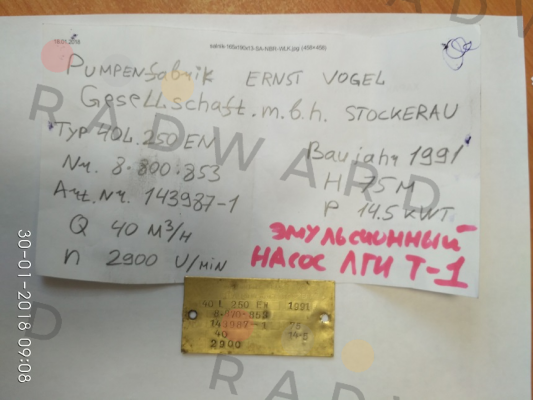 19.01.2018
PUMPENfabrik ERNST VOGEL
Gesellschaft.m.b.h. STOCKERAU
Typ 40L.250 EN
Baujahr 1991
Nr. 8.800.853
H 75 M
Art.Nr. 143987-1
P 14.5 KWT
Q 40 M³/H
n 2900 U/min
ЭМУЛЬСИОННЫЙ
НАСОС ЛГИ Т-1
40 L 250 EN 1991
143987-1 75
40 14.5
2900
30-01-2018 09:08
RADWARD